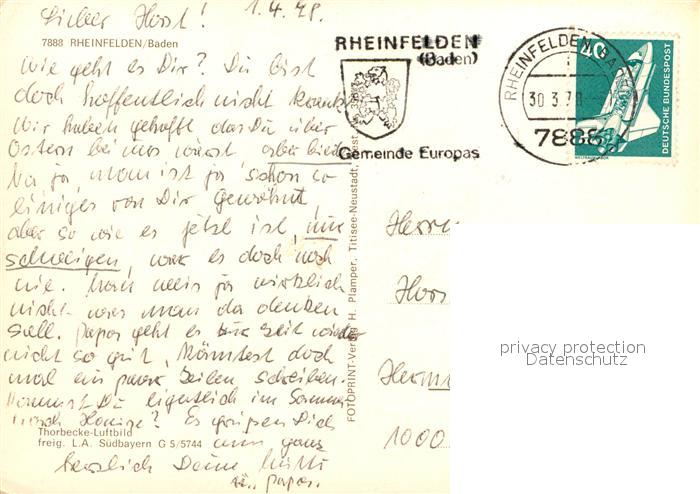 Lieber Horst! 1.4.78.
7888 RHEINFELDEN/Baden
Wie geht es Dir? Du bist
doch hoffentlich nicht krank
Wir haben gehofft, das Du über
Ostern bei uns warst, aber leider
Na ja, man ist ja schon so
einiges von Dir Gewöhnt,
aber so wie es jetzt ist, nur
schweigen, war es doch noch
nie. Man weis ja wirklich
nicht was man da denken
soll. Papas geht es zur Zeit wieder
nicht so gut, Könntest doch
mal ein paar Zeilen schreiben.
Kommst Du eigentlich im Sommer
nach Hause? Es grüßen Dich
Thorbecke-Luftbild
freig. L.A. Südbayern G 5/5744
ganz
herzlich Deine Mutti
u. Papa.
FOTOPRINT-Verlag H. Plamper, Titisee-Neustadt,
RHEINFELDEN
(Baden)
Gemeinde Europas
RHEINFELDEN (BADEN)
30.3.78
7888
40
DEUTSCHE BUNDESPOST
WELTRAUMLABOR
Herrn
Hors
privacy protection
Datenschutz
Herm
1000